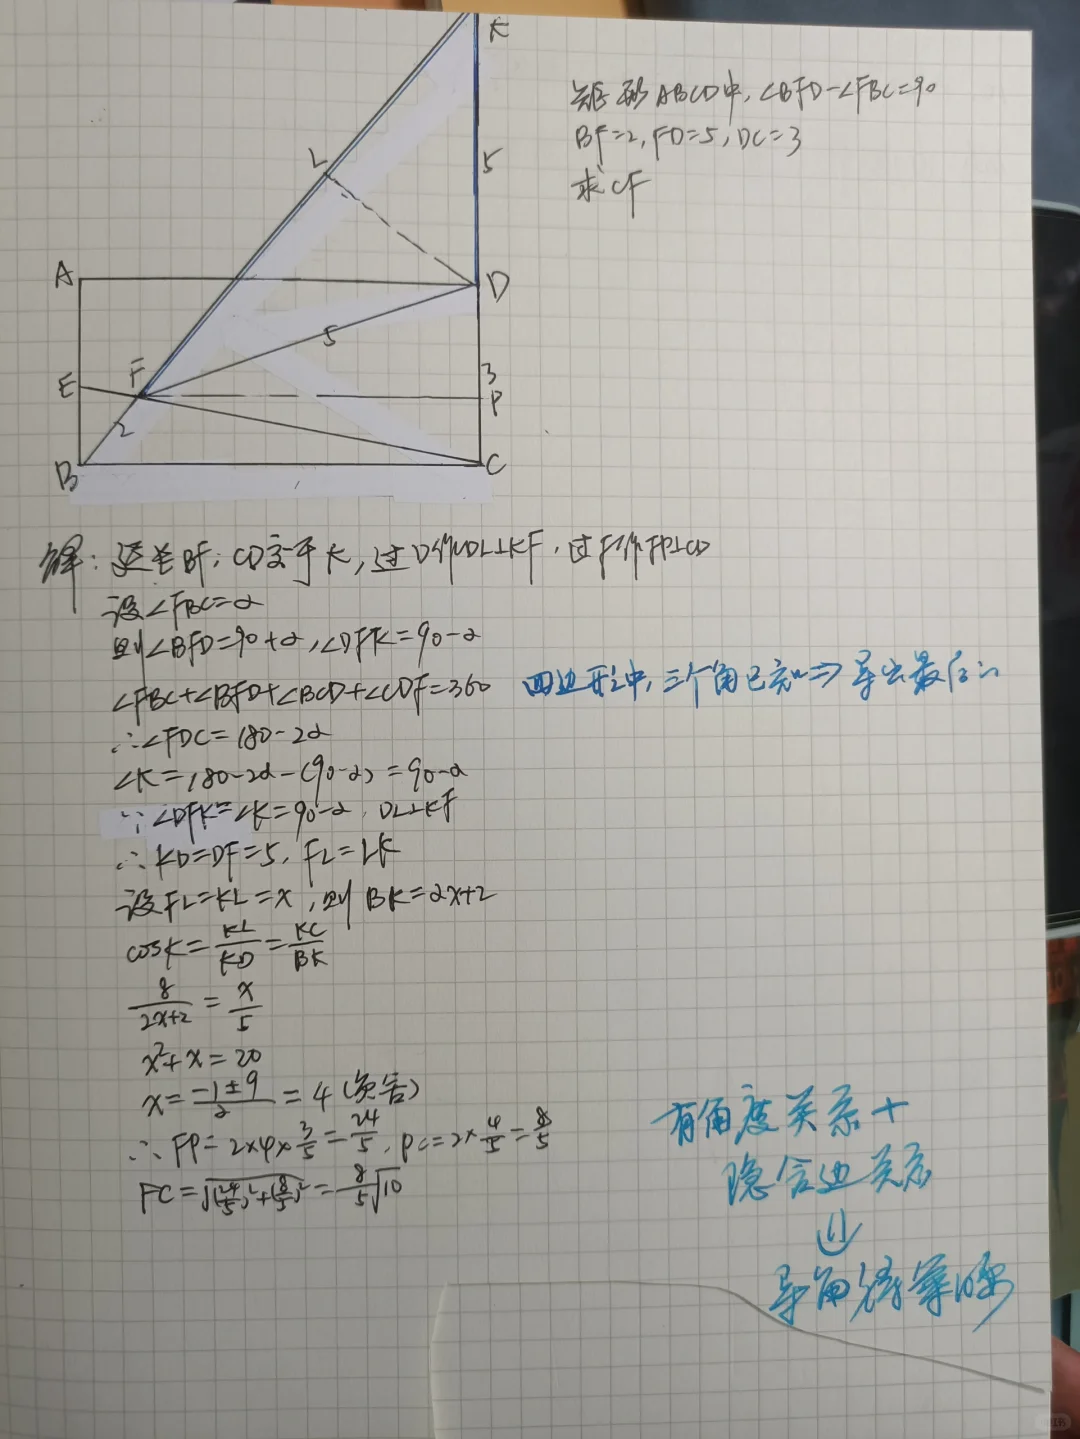 K
矩形ABCD中,∠BFD-∠FBC=90
BF=2,FD=5,DC=3
求CF
L
5
A
D
5
E
F
3
P
2
B
C
解:延长BF,CD交于K,过D作DL⊥KF,过F作FP⊥CD
设∠FBC=α
则∠BFD=90+α,∠DFK=90-α
∠FBC+∠BFD+∠BCD+∠CDF=360
四边形中,三个角已知⇒导出最后一
∴∠FDC=180-2α
∠K=180-2α-(90-α)=90-α
∵∠DFK=∠K=90-α,DL⊥KF
∴KD=DF=5,FL=LK
设FL=KL=x,则BK=2x+2
cosK=KL/KD=KC/BK
8/(2x+2)=x/5
x²+x=20
x=(-1±9)/2=4(负舍)
∴FP=2×4×3/5=24/5,PC=2×4/5=8/5
FC=√((24/5)²+(8/5)²)=8/5√10
有角度关系+
隐含边关系
⇓
导角得答案